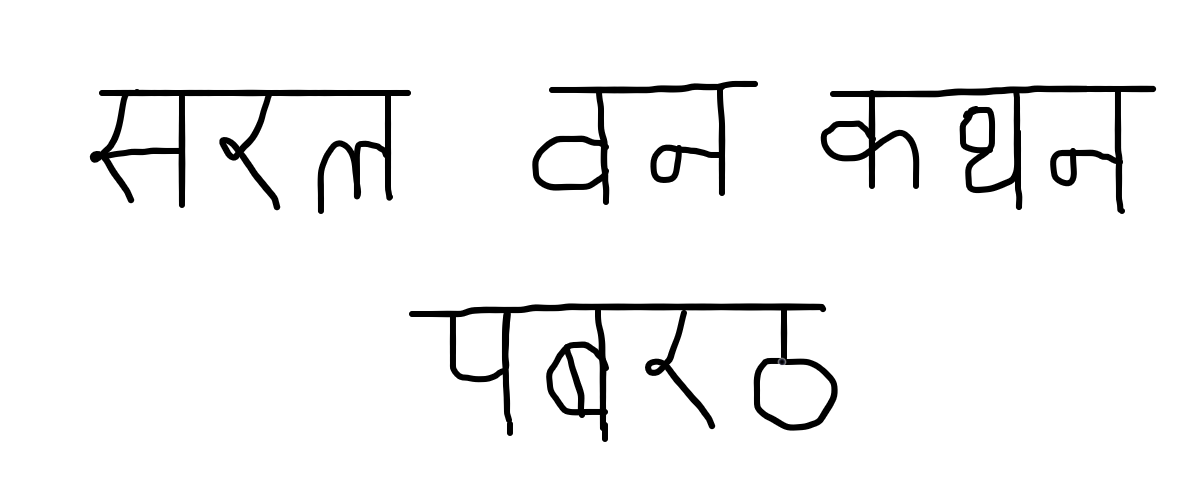 सरल वन कथन
पबरठ